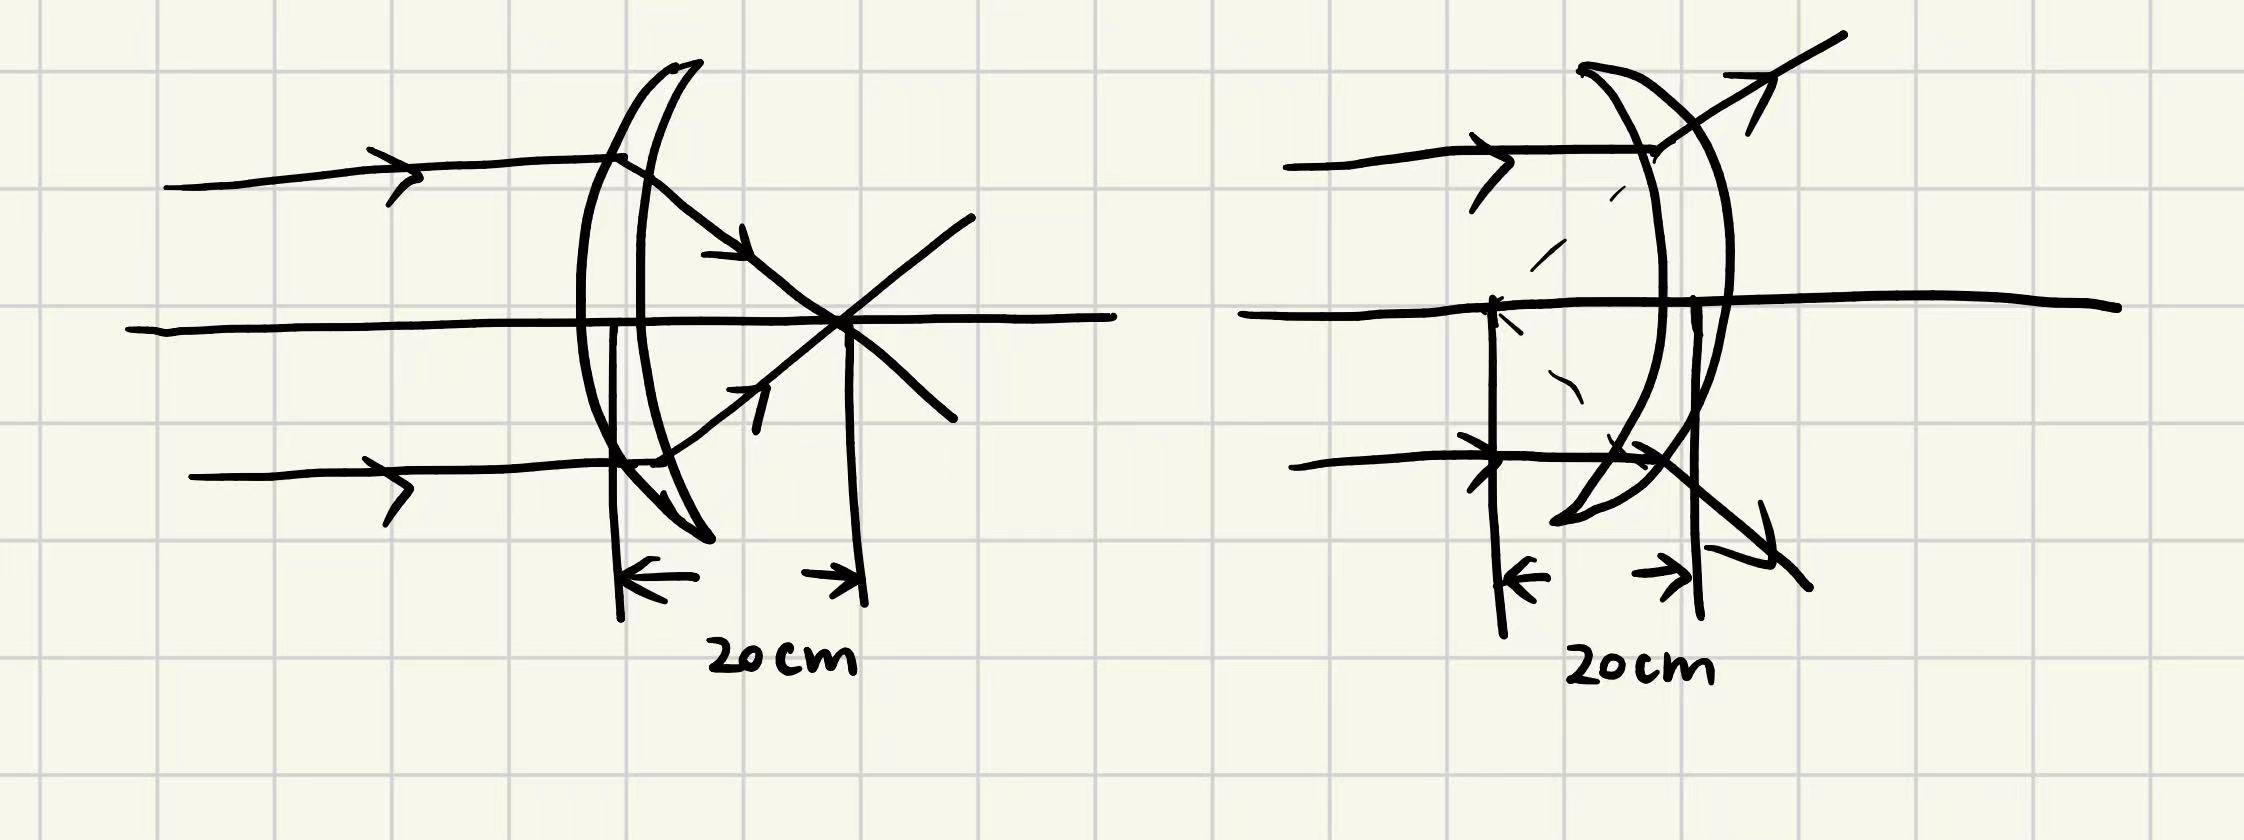 20cm
20cm